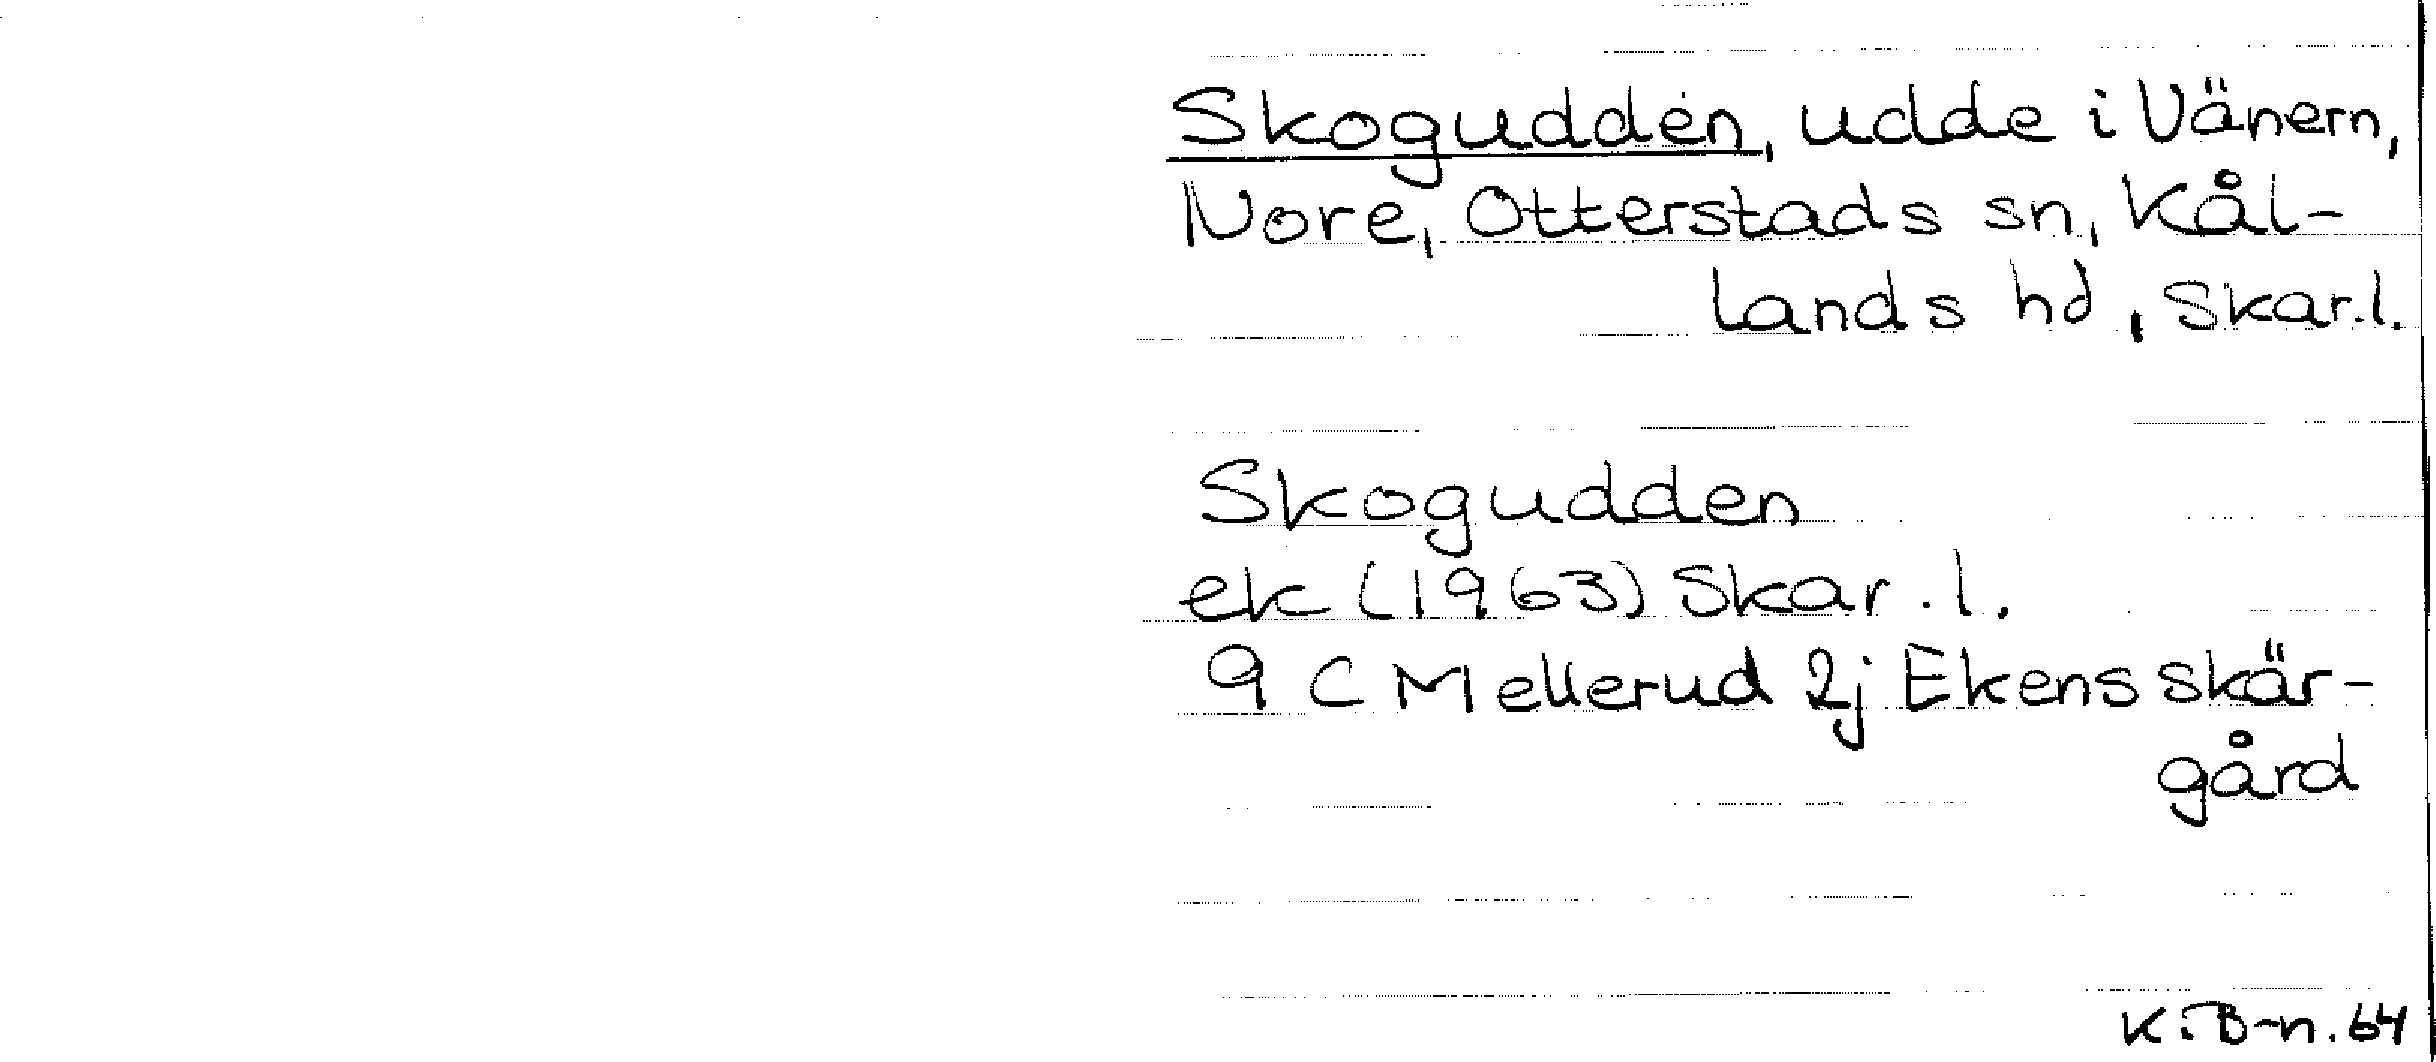 Skogudden, udde i Vänern,
Nore, Otterstads sn, Kål-
lands hd, Skar.l.
Skogudden
ek (1963) Skar.l.
9 C Mellerud 2j Ekens skär-
gård
K.B-n.64